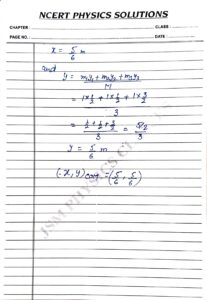 NCERT PHYSICS SOLUTIONS
CHAPTER :
CLASS :
PAGE NO. :
DATE :
x = 5/6 m
and
y = m₁y₁ + m₂y₂ + m₃y₃ / M
= 1×1/2 + 1×1/2 + 1×3/2 / 3
= 1/2 + 1/2 + 3/2 / 3 = 5/2 / 3
y = 5/6 m
(x, y) = (5/6, 5/6)
JSM PHYSICS